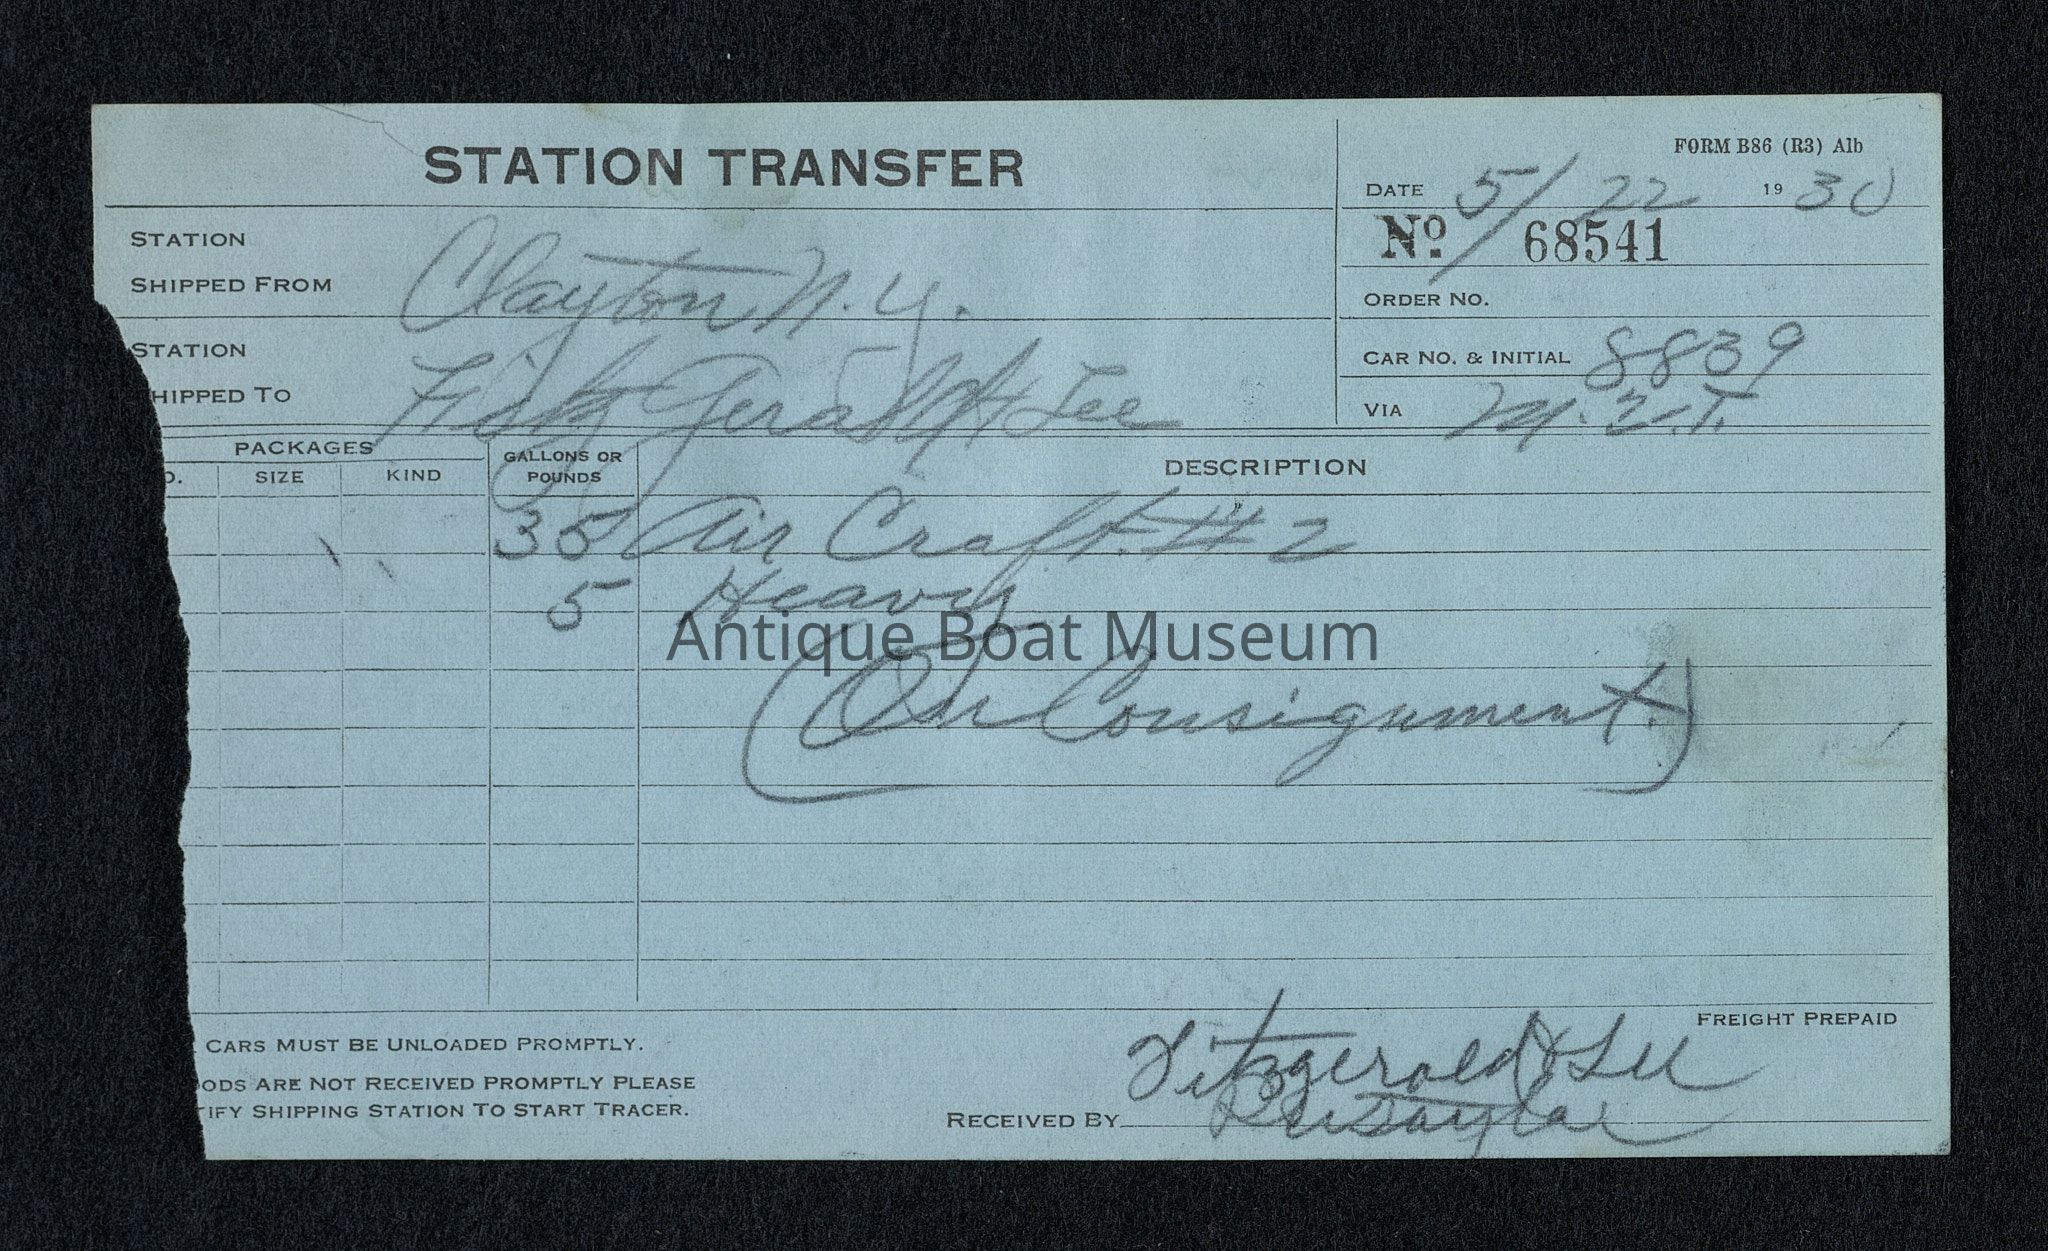 STATION TRANSFER
FORM B86 (R3) Alb
DATE 5/22 1930
No. 68541
STATION
SHIPPED FROM Clayton N.Y.
ORDER NO.
STATION
HIPPED TO Fitz Gerald & Lee
CAR NO. & INITIAL 8839
VIA
PACKAGES
GALLONS OR
POUNDS
DESCRIPTION
O. SIZE KIND
35 Air Craft #2
5 Heavy
Antique Boat Museum
(On Consignment.)
FREIGHT PREPAID
CARS MUST BE UNLOADED PROMPTLY.
OODS ARE NOT RECEIVED PROMPTLY PLEASE
TIFY SHIPPING STATION TO START TRACER.
Fitzgerald & Lee
RECEIVED BY